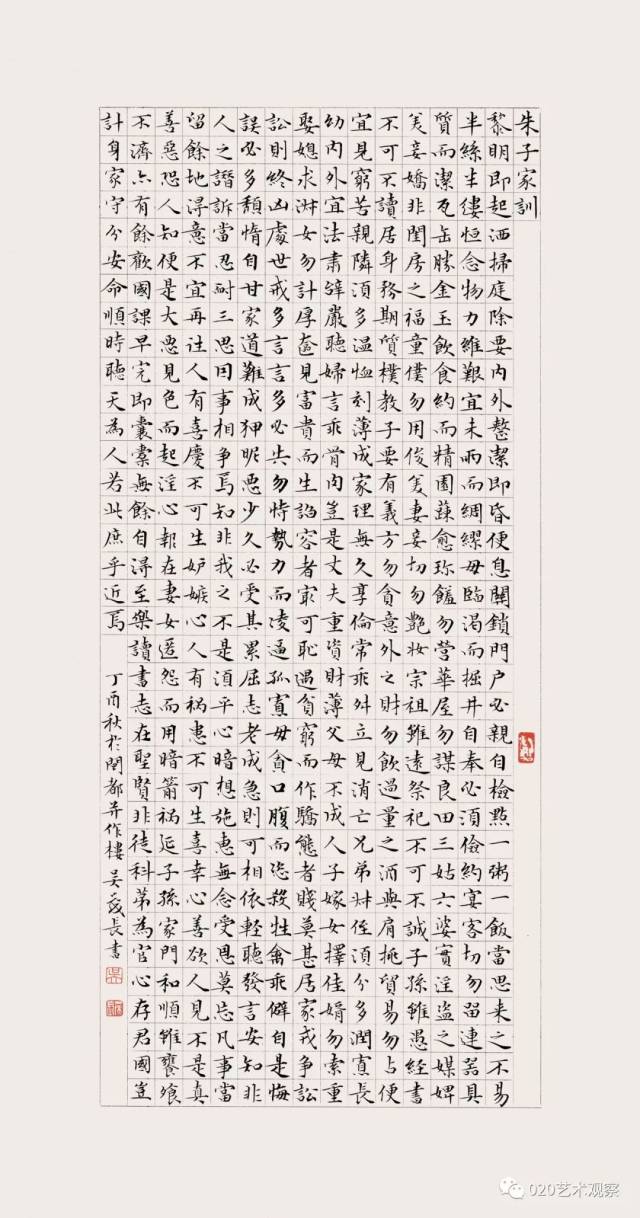 朱子家訓
黎明即起洒掃庭除要內外整潔即昏便息關鎖門户必親自檢點一粥一飯當思来之不易
半絲半縷恒念物力維艱宜未雨而綢繆毋臨渴而掘井自奉必須儉約宴客切勿留連器具
質而潔瓦缶勝金玉飲食約而精園蔬愈珎饈勿營華屋勿謀良田三姑六婆實淫盜之媒婢
美妾嬌非閨房之福童僕勿用俊美妻妾切勿艷妝宗祖雖遠祭祀不可不誠子孫雖愚經書
不可不讀居身務期質樸教子要有義方勿貪意外之財勿飲過量之酒與肩挑貿易勿占便
宜見窮苦親隣須多温恤刻薄成家理無久享倫常乖舛立見消亡兄弟叔侄須分多潤寡長
幼內外宜法肅辭嚴聽婦言乖骨肉豈是丈夫重資財薄父母不成人子嫁女擇佳婿勿索重
娶媳求淑女勿計厚奩見富貴而生諂容者最可恥遇貧窮而作驕態者賤莫甚居家戒争訟
訟則終凶處世戒多言言多必失勿恃勢力而凌逼孤寡毋貪口腹而恣殺牲禽乖僻自是悔
誤必多頹惰自甘家道難成狎昵惡少久必受其累屈志老成急則可相依輕聽發言安知非
人之譖訴當忍耐三思因事相争焉知非我之不是須平心暗想施惠無念受恩莫忘凡事當
留餘地得意不宜再往人有喜慶不可生妒嫉心人有禍患不可生喜幸心善欲人見不是真
善惡恐人知便是大惡見色而起淫心報在妻女匿怨而用暗箭禍延子孫家門和順雖饔飧
不濟亦有餘歡國課早完即囊橐無餘自得至樂讀書志在聖賢非徒科第為官心存君國豈
計身家守分安命順時聽天為人若此庶乎近焉
丁酉秋於閩都并作樓 吴茂長書
020艺术观察